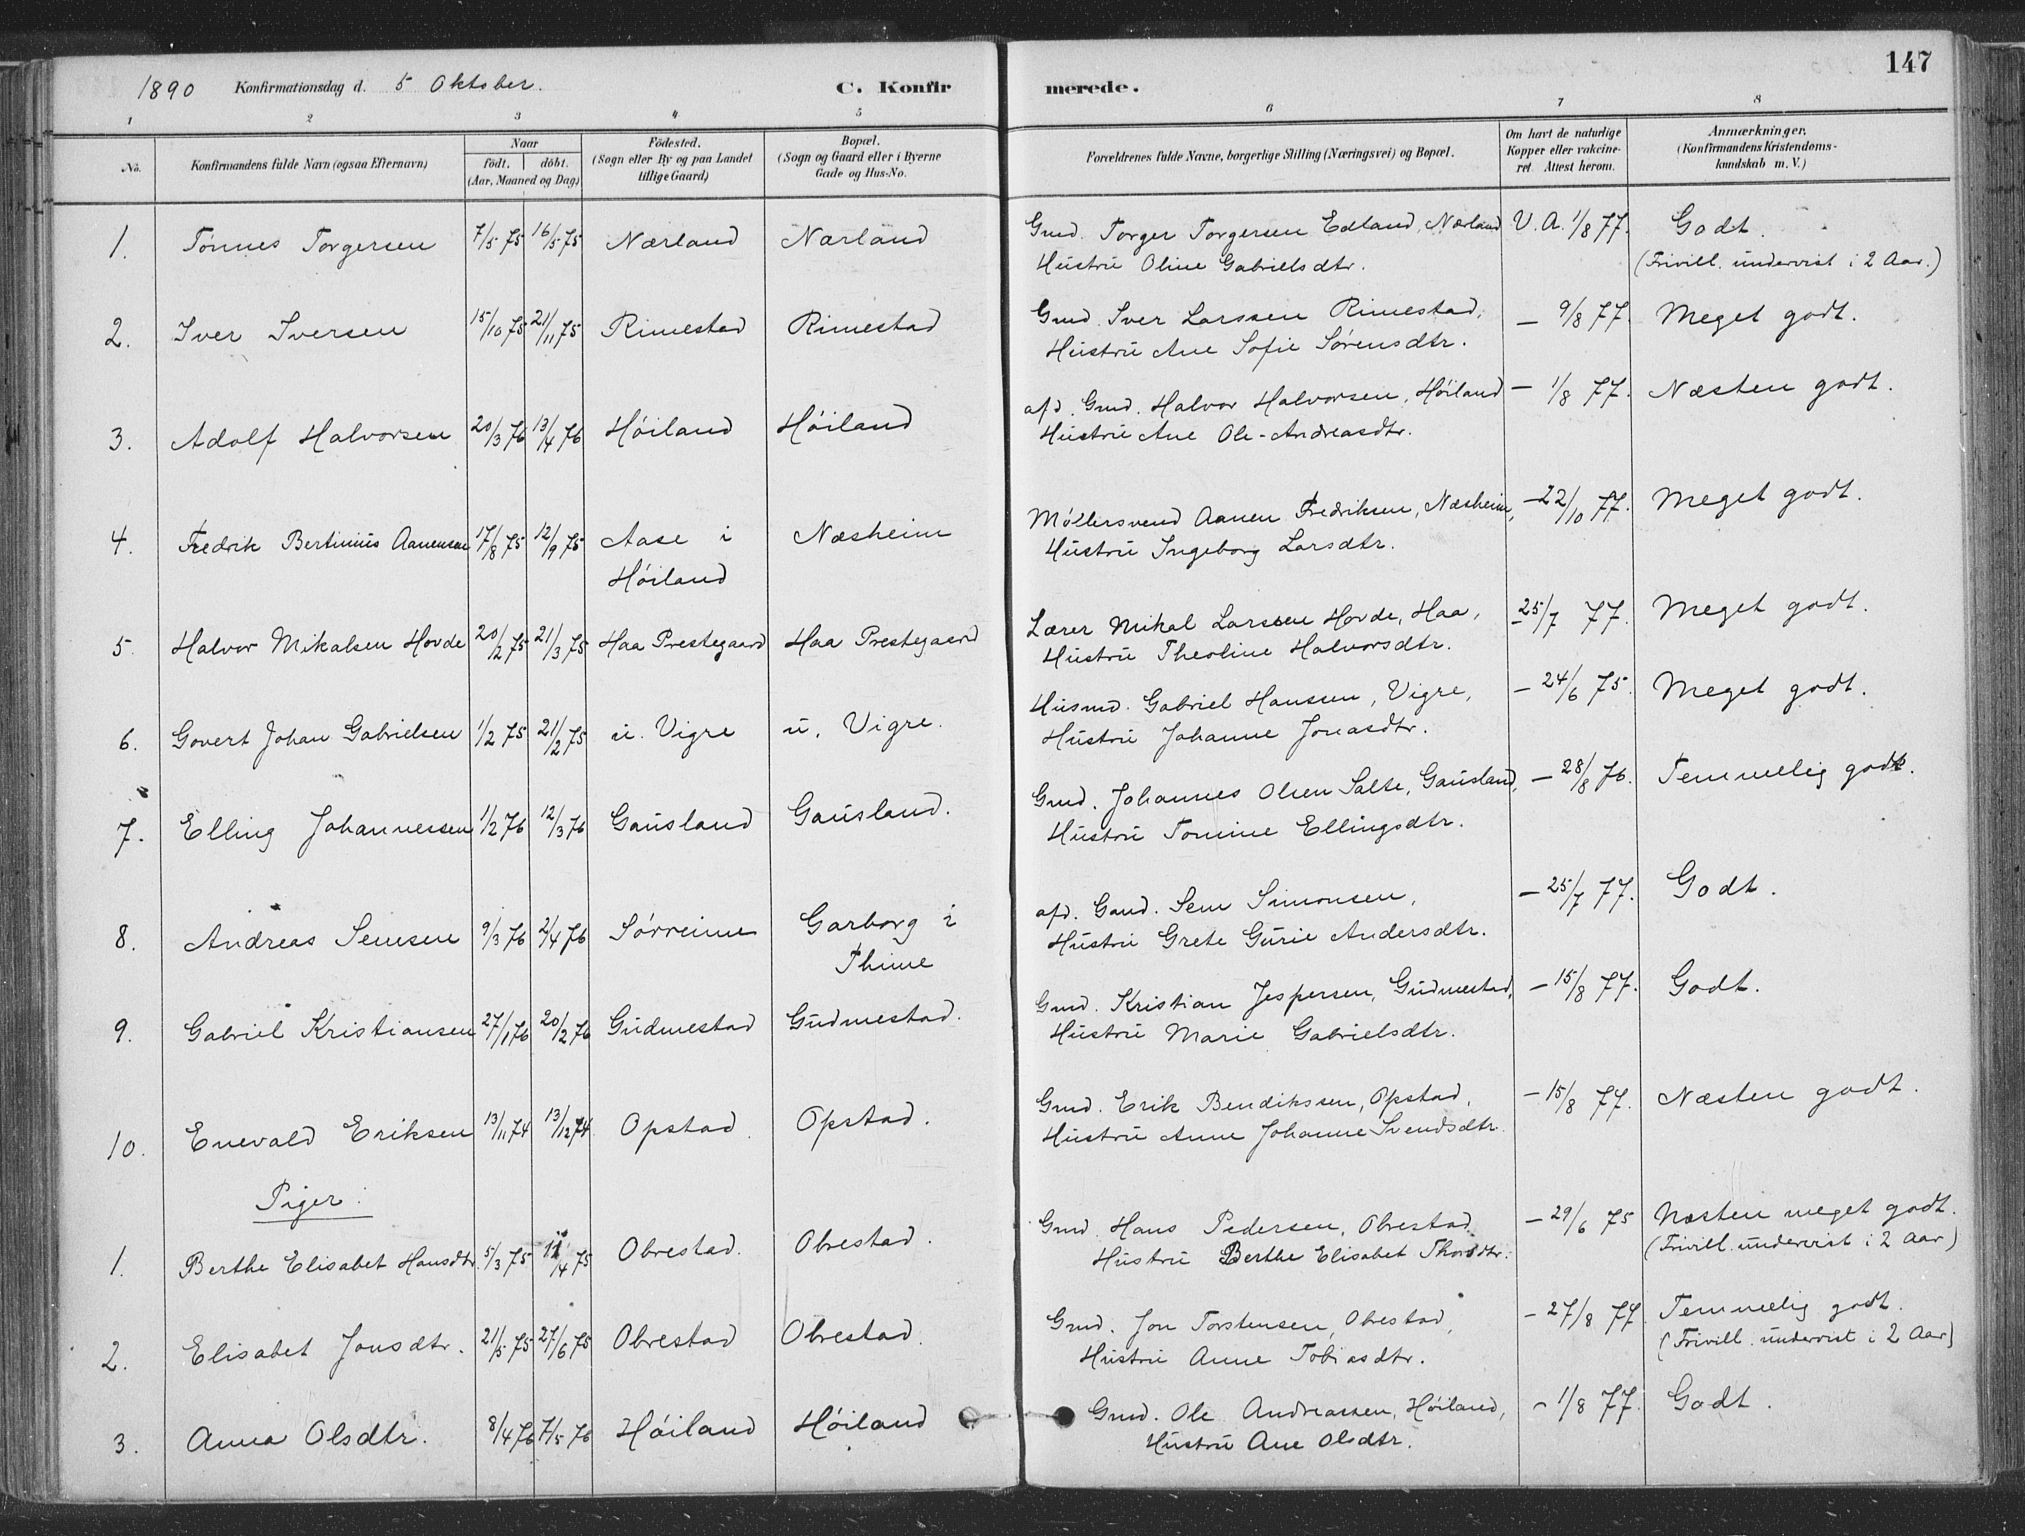 147
1890 Konfirmationsdag d. 5 Oktober. C. Konfirmerede.
1 2 3 4 5 6 7 8
No. Konfirmandens fulde Navn (ogsaa Efternavn) Naar født. døbt. (Aar, Maaned og Dag) Födested. (Sogn eller By og paa Landet tillige Gaard) Bopæl. (Sogn og Gaard eller i Byerne Gade og Hus-No. Forældrenes fulde Navne, borgerlige Stilling (Næringsvei) og Bopæl. Om havt de naturlige Kopper eller vakcineret. Attest herom. Anmærkninger. (Konfirmandens Kristendomskundskab m. V.)
1. Tønnes Torgersen 7/5 75 16/5 75 Nærland Nærland Gmd. Torger Torgersen Edland, Nærland V. A. 1/8 77. Godt.
Hustru Oline Gabrielsdtr. (Frivill. undervist i 2 Aar.)
2. Iver Iversen 15/10 75 21/11 75 Rimestad Rimestad Gmd. Iver Larssen Rimestad, — 9/8 77. Meget godt.
Hustru Ane Sofie Sørensdtr.
3. Adolf Halvorsen 20/3 76 13/4 76 Høiland Høiland afd. Gmd. Halvor Halvorsen, Høiland — 1/8 77. Næsten godt.
Hustru Ane Ole-Andreasdtr.
4. Fredrik Bertinius Aanensen 17/8 75 12/9 75 Aase i Næsheim Møllersvend Aanen Fredriksen, Næsheim, — 22/10 77. Meget godt.
Høiland Hustru Ingeborg Larsdtr.
5. Halvor Mikalsen Hovde 20/2 75 21/3 75 Haa Prestegaard Haa Prestegaard Lærer Mikal Larssen Hovde, Haa, — 25/7 77. Meget godt.
Hustru Theoline Halvorsdtr.
6. Govert Johan Gabrielsen 1/2 75 21/2 75 u. Vigre u. Vigre. Husmd. Gabriel Hanssen, Vigre, — 24/6 75. Meget godt.
Hustru Johanne Jonasdtr.
7. Elling Johannessen 1/2 76 12/3 76 Gausland Gausland. Gmd. Johannes Olsen Salte, Gausland, — 28/8 76. Temmelig godt.
Hustru Tomine Ellingsdtr.
8. Andreas Semsen 9/3 76 2/4 76 Sørreime Garborg i afd. Gmd. Sem Simonsen, — 25/7 77. Godt.
Thime Hustru Grete Gurie Andersdtr.
9. Gabriel Kristiansen 27/1 76 20/2 76 Gudmestad Gudmestad. Gmd. Kristian Jespersen, Gudmestad, — 15/8 77. Godt.
Hustru Marie Gabrielsdtr.
10. Enevald Eriksen 13/11 74 13/12 74 Opstad Opstad. Gmd. Erik Bendikssen, Opstad, — 15/8 77. Næsten godt.
Hustru Anne Johanne Svendsdtr.
Piger.
1. Berthe Elisabet Hansdtr. 5/3 75 11/4 75 Obrestad. Obrestad. Gmd. Hans Pedersen, Obrestad — 29/6 75 Næsten meget godt.
Hustru Berthe Elisabet Thorsdtr. (Frivill. undervist i 2 Aar)
2. Elisabet Jonsdtr. 21/5 75 27/6 75 Obrestad Obrestad. Gmd. Jon Torstensen, Obrestad, — 27/8 77. Temmelig godt.
Hustru Anne Tobiasdtr. (Frivill. undervist i 2 Aar)
3. Anna Olsdtr. 8/4 76 7/5 76 Høiland Høiland Gmd. Ole Andreassen, Høiland, — 1/8 77. Godt.
Hustru Ane Olsdtr.